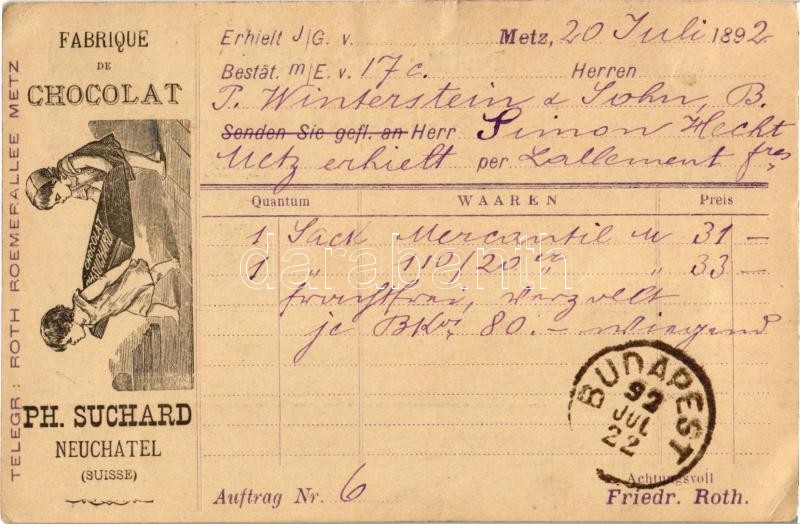 FABRIQUE
DE
CHOCOLAT
CHOCOLAT
SUCHARD
PH. SUCHARD
NEUCHATEL
(SUISSE)
TELEGR: ROTH ROEMERALLEE METZ
Erhielt J/G. v. Metz, 20 Juli 1892
Bestät. m/E. v. 17 c. Herren
P. Winterstein & Sohn, B.
Senden Sie gefl. an Herr Simon Hecht
Metz erhielt per Lallement fres
Quantum WAAREN Preis
1 Sack Mercantil M 31 –
1 " 110/20 er " 33 –
frachtfrei, verzollt
je BKos 80. – wiegend
darabanth
BUDAPEST
92
JUL
22
Achtungsvoll
Auftrag Nr. 6 Friedr. Roth.